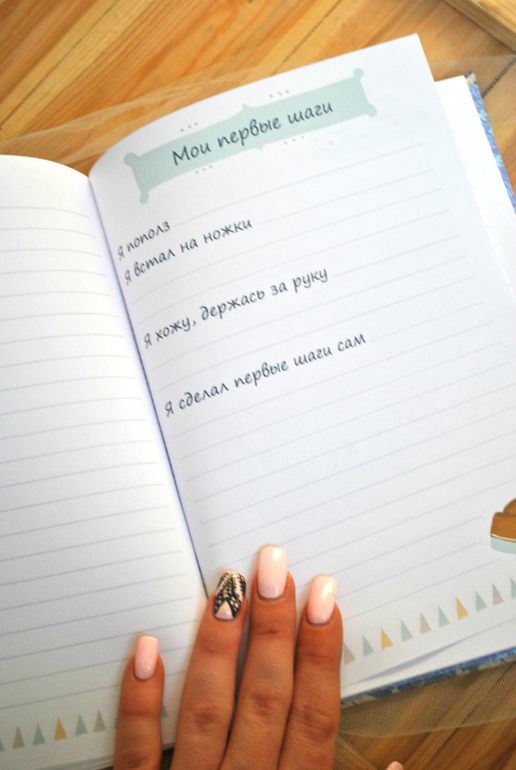 Мои первые шаги
Я пополз
Я встал на ножки
Я хожу, держась за руку
Я сделал первые шаги сам